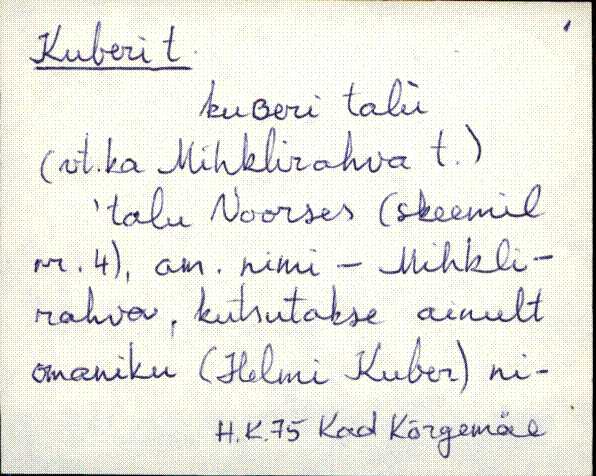 Kuberi t.
kuʙeri talù
(vt. ka Mihklirahva t.)
'talu Noorses (skeemil
nr. 4), am. nimi - Mihkli-
rahva, kutsutakse ainult
omaniku (Helmi Kuber) ni-
H.K.75 Kad Kõrgemäe